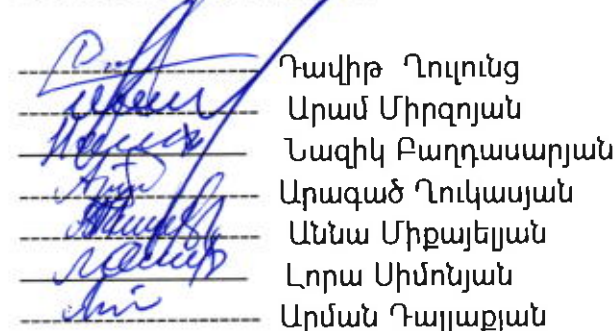 Դավիթ Ղուլունց
Արամ Միրզոյան
Նազիկ Բաղդասարյան
Արագած Ղուկասյան
Աննա Միքայելյան
Լորա Սիմոնյան
Արման Դալլաքյան